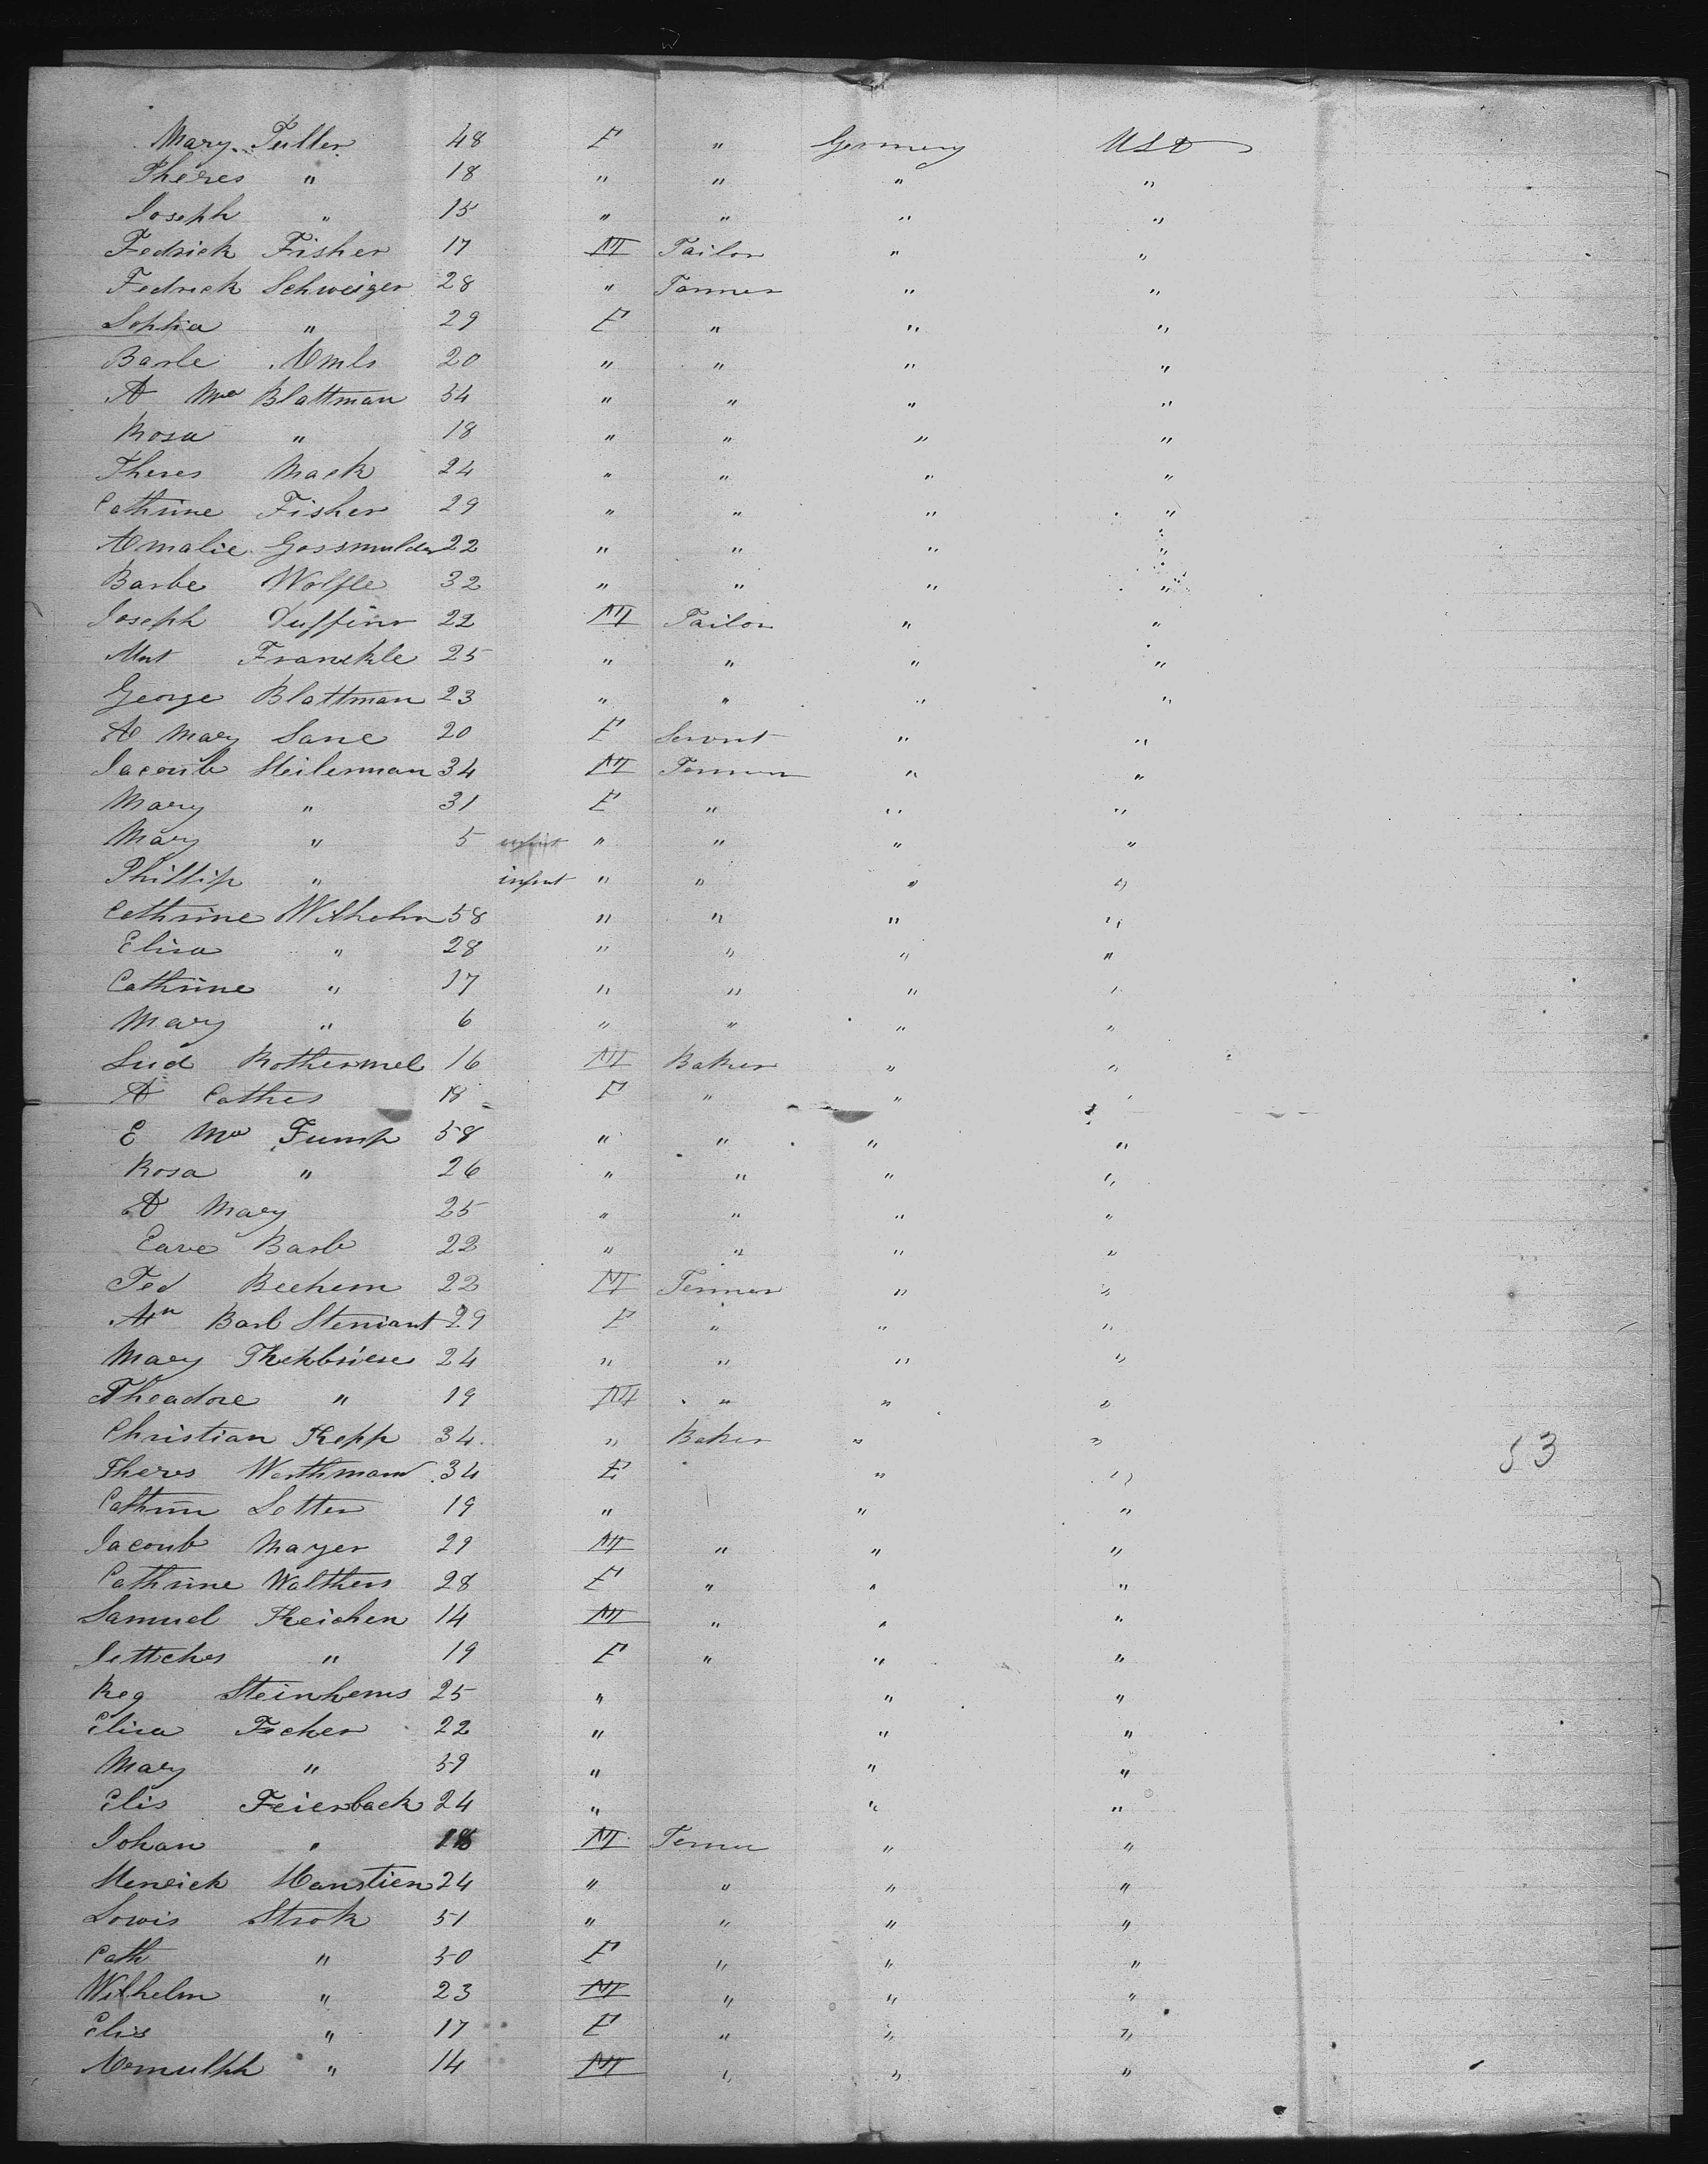 Mary Tuller 48 F " Germany USA
Theres " 18 " " " "
Joseph " 15 " " " "
Fedrick Fisher 17 M Tailor " "
Fedrick Schweiger 28 " Farmer " "
Sophia " 29 F " " "
Barbe 20 " " " "
A Ma Blattman 54 " " " "
Rosa " 18 " " " "
Theres Mack 24 " " " "
Cathrine Fisher 29 " " " "
Amalie Gossmulder 22 " " " "
Barbe Wolfle 32 " " " "
Joseph Duffinr 22 M Tailor " "
Franckle 25 " " " "
George Blattman 23 " " " "
A Mary Sane 20 F Servnt " "
Jacoub Steilerman 34 M Farmer " "
Mary " 31 F " " "
Mary " 5 " " " "
Phillip " infnt " " " "
Cathrine Wilhelm 58 " " " "
Elisa " 28 " " " "
Cathrine " 17 " " " "
Mary " 6 " " " "
Lud Rothermel 16 M Baker " "
A Cathes 18 F " " "
E Ma Fump 58 " " " "
Rosa " 26 " " " "
A Mary 25 " " " "
Eave Barb 22 " " " "
Fed Bechem 22 M Farmer " "
Barb 29 F " " "
Mary 24 " " " "
Theadore " 19 M " " "
Christian Kepp 34 " Baker " "
Theres Werthman 34 F " "
Cathrin Setter 19 " " "
Jacoub Mayer 29 M " " "
Cathrine Walthers 28 F " " "
Samuel Keichen 14 M " " "
Jettches " 19 F " " "
Reg Steinhems 25 " " "
Elisa Fecher 22 " " "
Mary " 59 " " "
Elis Feierback 24 " " "
Johan " 18 M Farmer " "
Henrick Hanstien 24 " " " "
Lowis Strok 51 " " " "
Cath " 50 F " " "
Wilhelm " 23 M " " "
Elis " 17 F " " "
" 14 M " " "
53